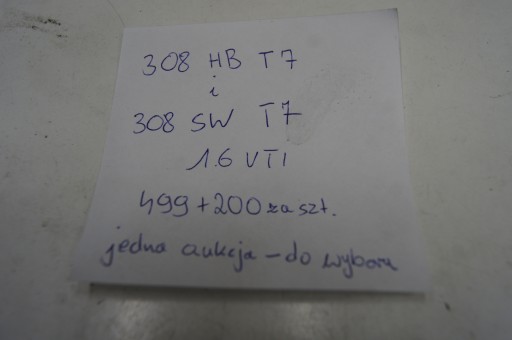 308 HB T7
i
308 SW T7
1.6 VTI
499 + 200 za szt.
jedna aukcja - do wyboru